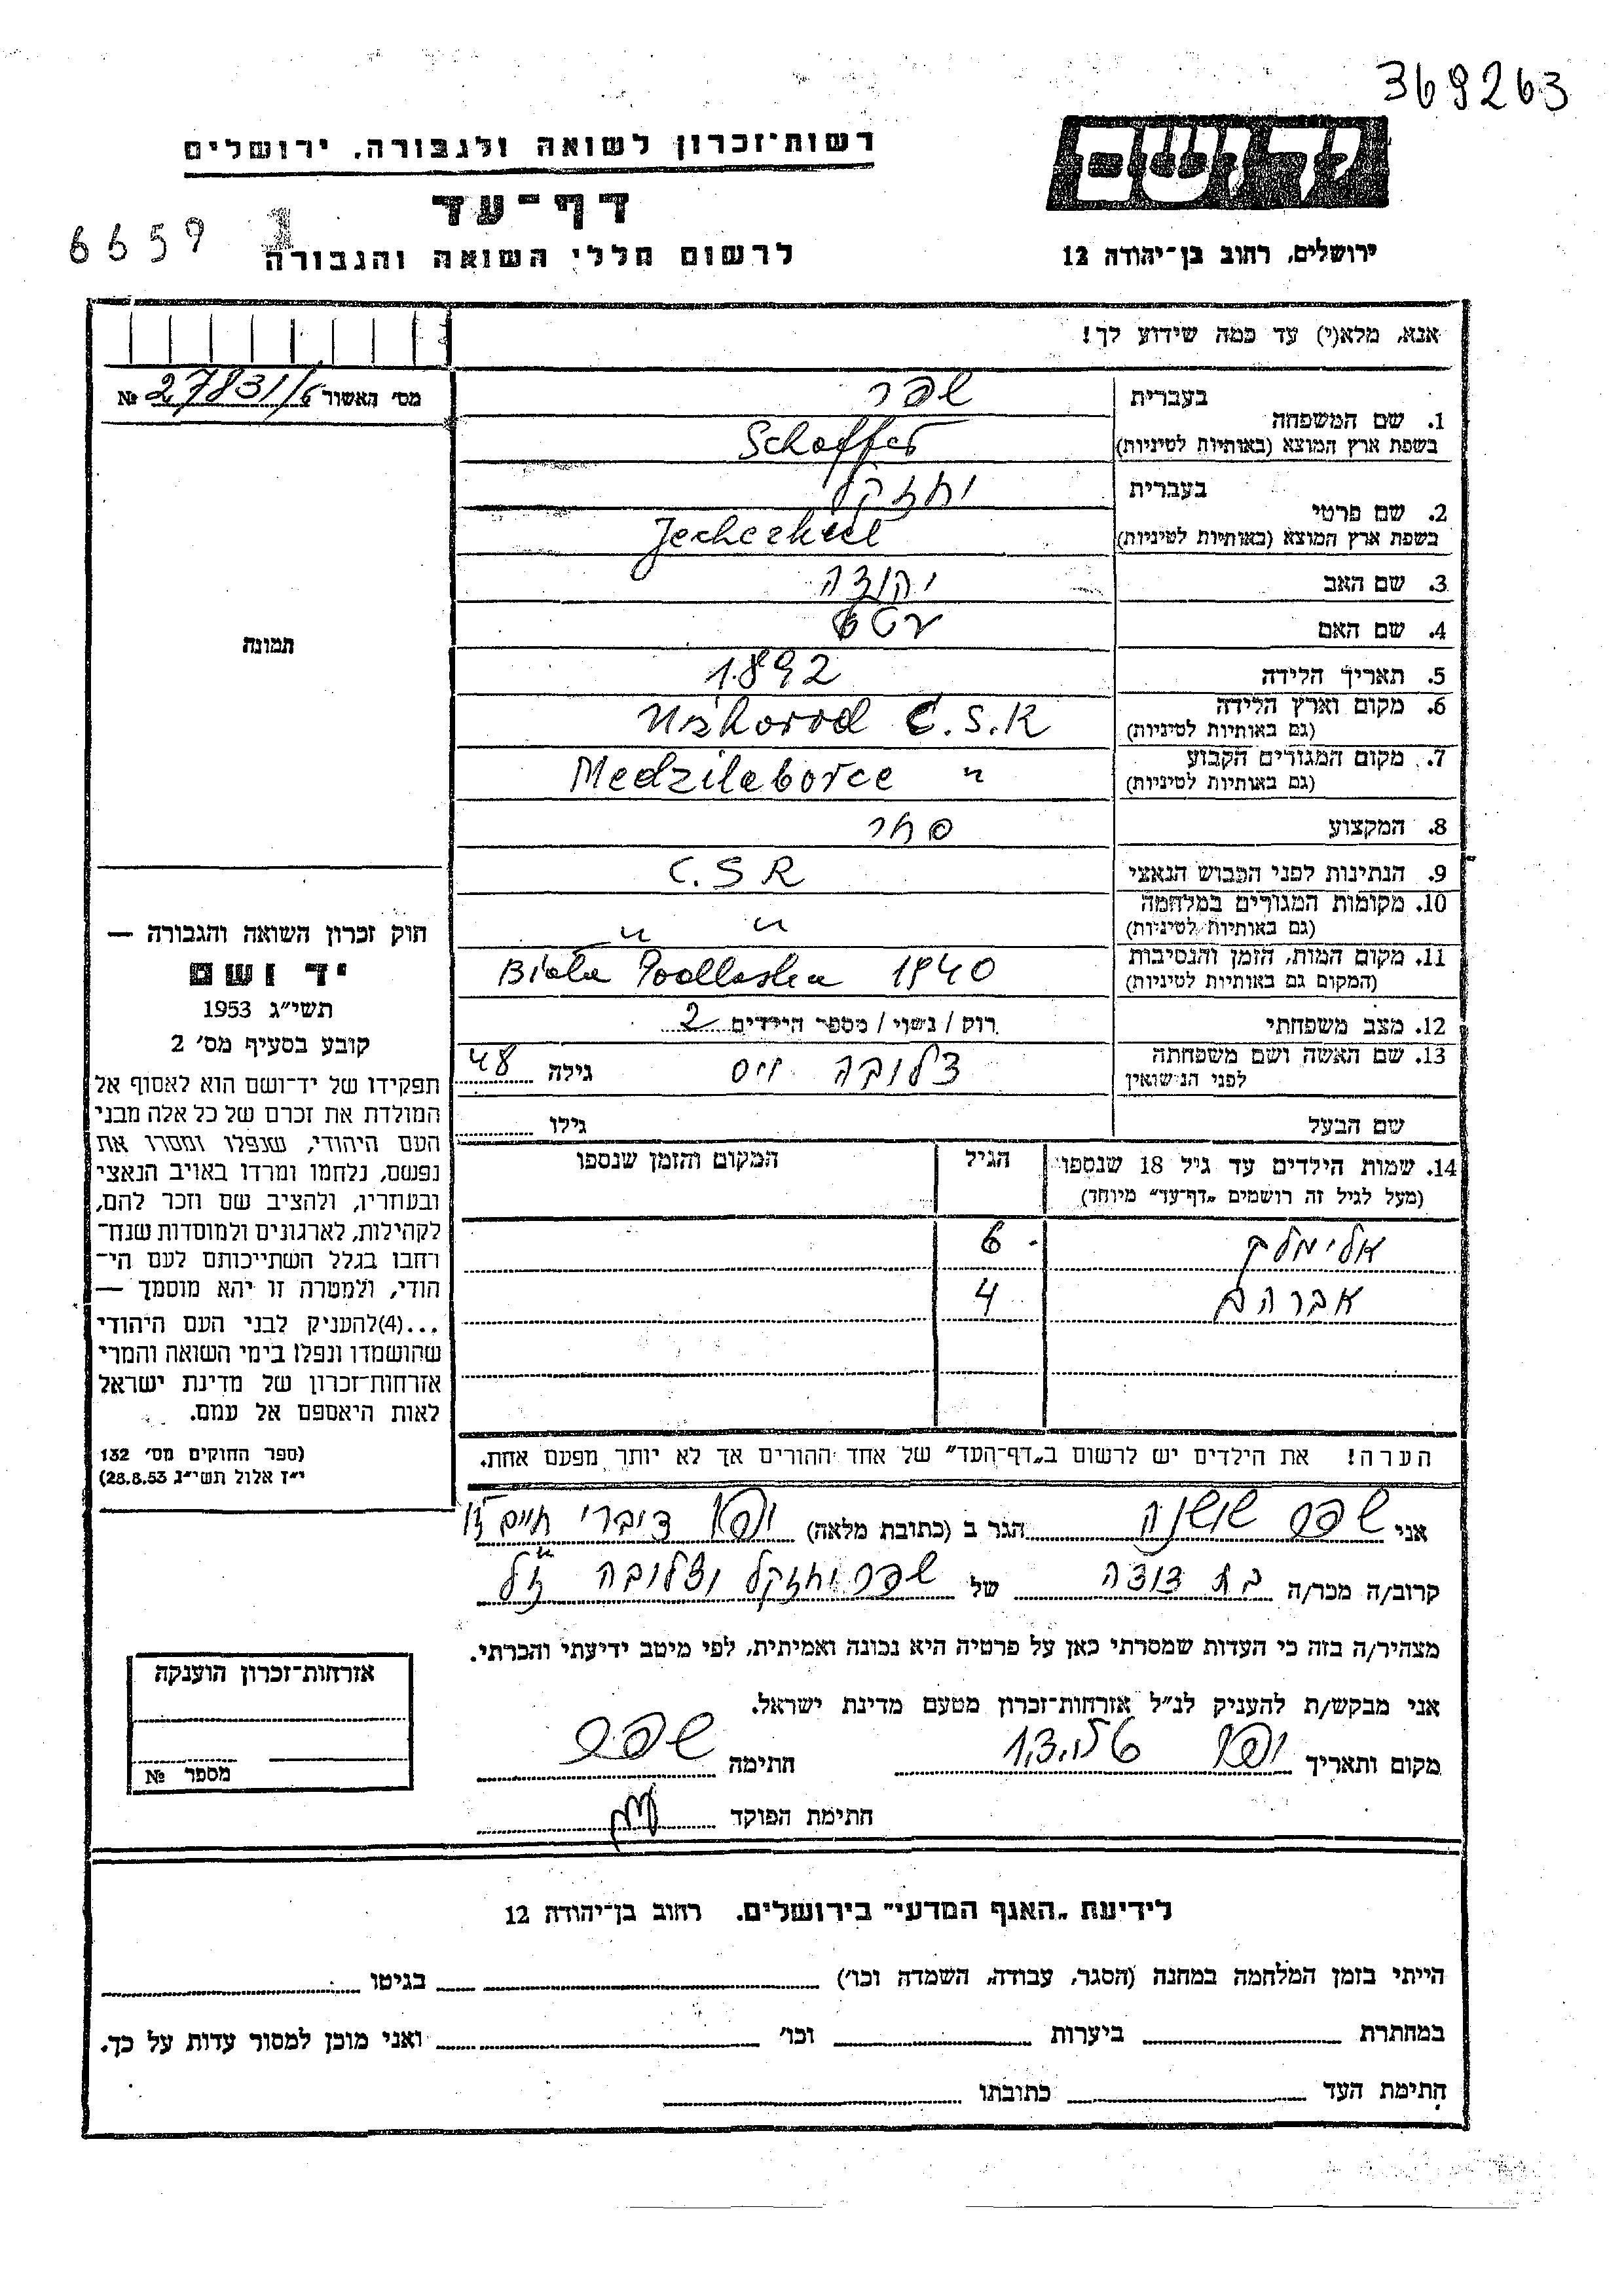 369263
יד ושם
רשות־זכרון לשואה ולגבורה, ירושלים
דף־עד
6659
לרשום חללי השואה והגבורה
ירושלים, רחוב בן־יהודה 12
אנא, מלא(י) עד כמה שידוע לך!
מס' האשור № 27831/6
1. שם המשפחה
בעברית
שפר
בשפת ארץ המוצא (באותיות לטיניות)
Schaffer
2. שם פרטי
בעברית
יחזקל
בשפת ארץ המוצא (באותיות לטיניות)
Jecheskel
3. שם האב
יהודה
4. שם האם
תמונה
5. תאריך הלידה
1892
6. מקום וארץ הלידה
(גם באותיות לטיניות)
Užhorod Č.S.R
7. מקום המגורים הקבוע
(גם באותיות לטיניות)
Medzilaborce "
8. המקצוע
סחר
9. הנתינות לפני הכבוש הנאצי
C.S R
10. מקומות המגורים במלחמה
(גם באותיות לטיניות)
" "
11. מקום המות, הזמן והנסיבות
(המקום גם באותיות לטיניות)
Biała Podlaska 1940
12. מצב משפחתי
רוק / נשוי / מספר הילדים 2
13. שם האשה ושם משפחתה
לפני הנישואין
צלובה ויס גילה 48
שם הבעל
גילו
14. שמות הילדים עד גיל 18 שנספו
(מעל לגיל זה רושמים „דף־עד" מיוחד)
הגיל
המקום והזמן שנספו
אלימלך 6
אברהם 4
חוק זכרון השואה והגבורה —
יד ושם
תשי"ג 1953
קובע בסעיף מס' 2
תפקידו של יד־ושם הוא לאסוף אל
המולדת את זכרם של כל אלה מבני
העם היהודי, שנפלו ומסרו את
נפשם, נלחמו ומרדו באויב הנאצי
ובעוזריו, ולהציב שם וזכר להם,
לקהילות, לארגונים ולמוסדות שנח־
רחבו בגלל השתייכותם לעם הי־
הודי, ולמטרה זו יהא מוסמך —
...(4)להעניק לבני העם היהודי
שהושמדו ונפלו בימי השואה והמרי
אזרחות־זכרון של מדינת ישראל
לאות היאספם אל עמם.
(ספר החוקים מס' 132
י"ז אלול תשי"ג 28.8.53)
הערה! את הילדים יש לרשום ב„דף־העד" של אחד ההורים אך לא יותר מפעם אחת.
אני שפר שושנה הגר ב (כתובת מלאה) יפו דיברי חיים
קרוב/ה מכר/ה בת דודה של שפר יחזקל וצלובה ז"ל
מצהיר/ה בזה כי העדות שמסרתי כאן על פרטיה היא נכונה ואמיתית, לפי מיטב ידיעתי והכרתי.
אני מבקש/ת להעניק לנ"ל אזרחות־זכרון מטעם מדינת ישראל.
מקום ותאריך יפו 1.3. חתימה שפר
חתימת הפוקד
אזרחות־זכרון הוענקה
מספר №
לידיעת „האגף המדעי" בירושלים, רחוב בן־יהודה 12
הייתי בזמן המלחמה במחנה (הסגר, עבודה, השמדה וכו') בגיטו
במחתרת ביערות וכו' ואני מוכן למסור עדות על כך.
חתימת העד כתובתו